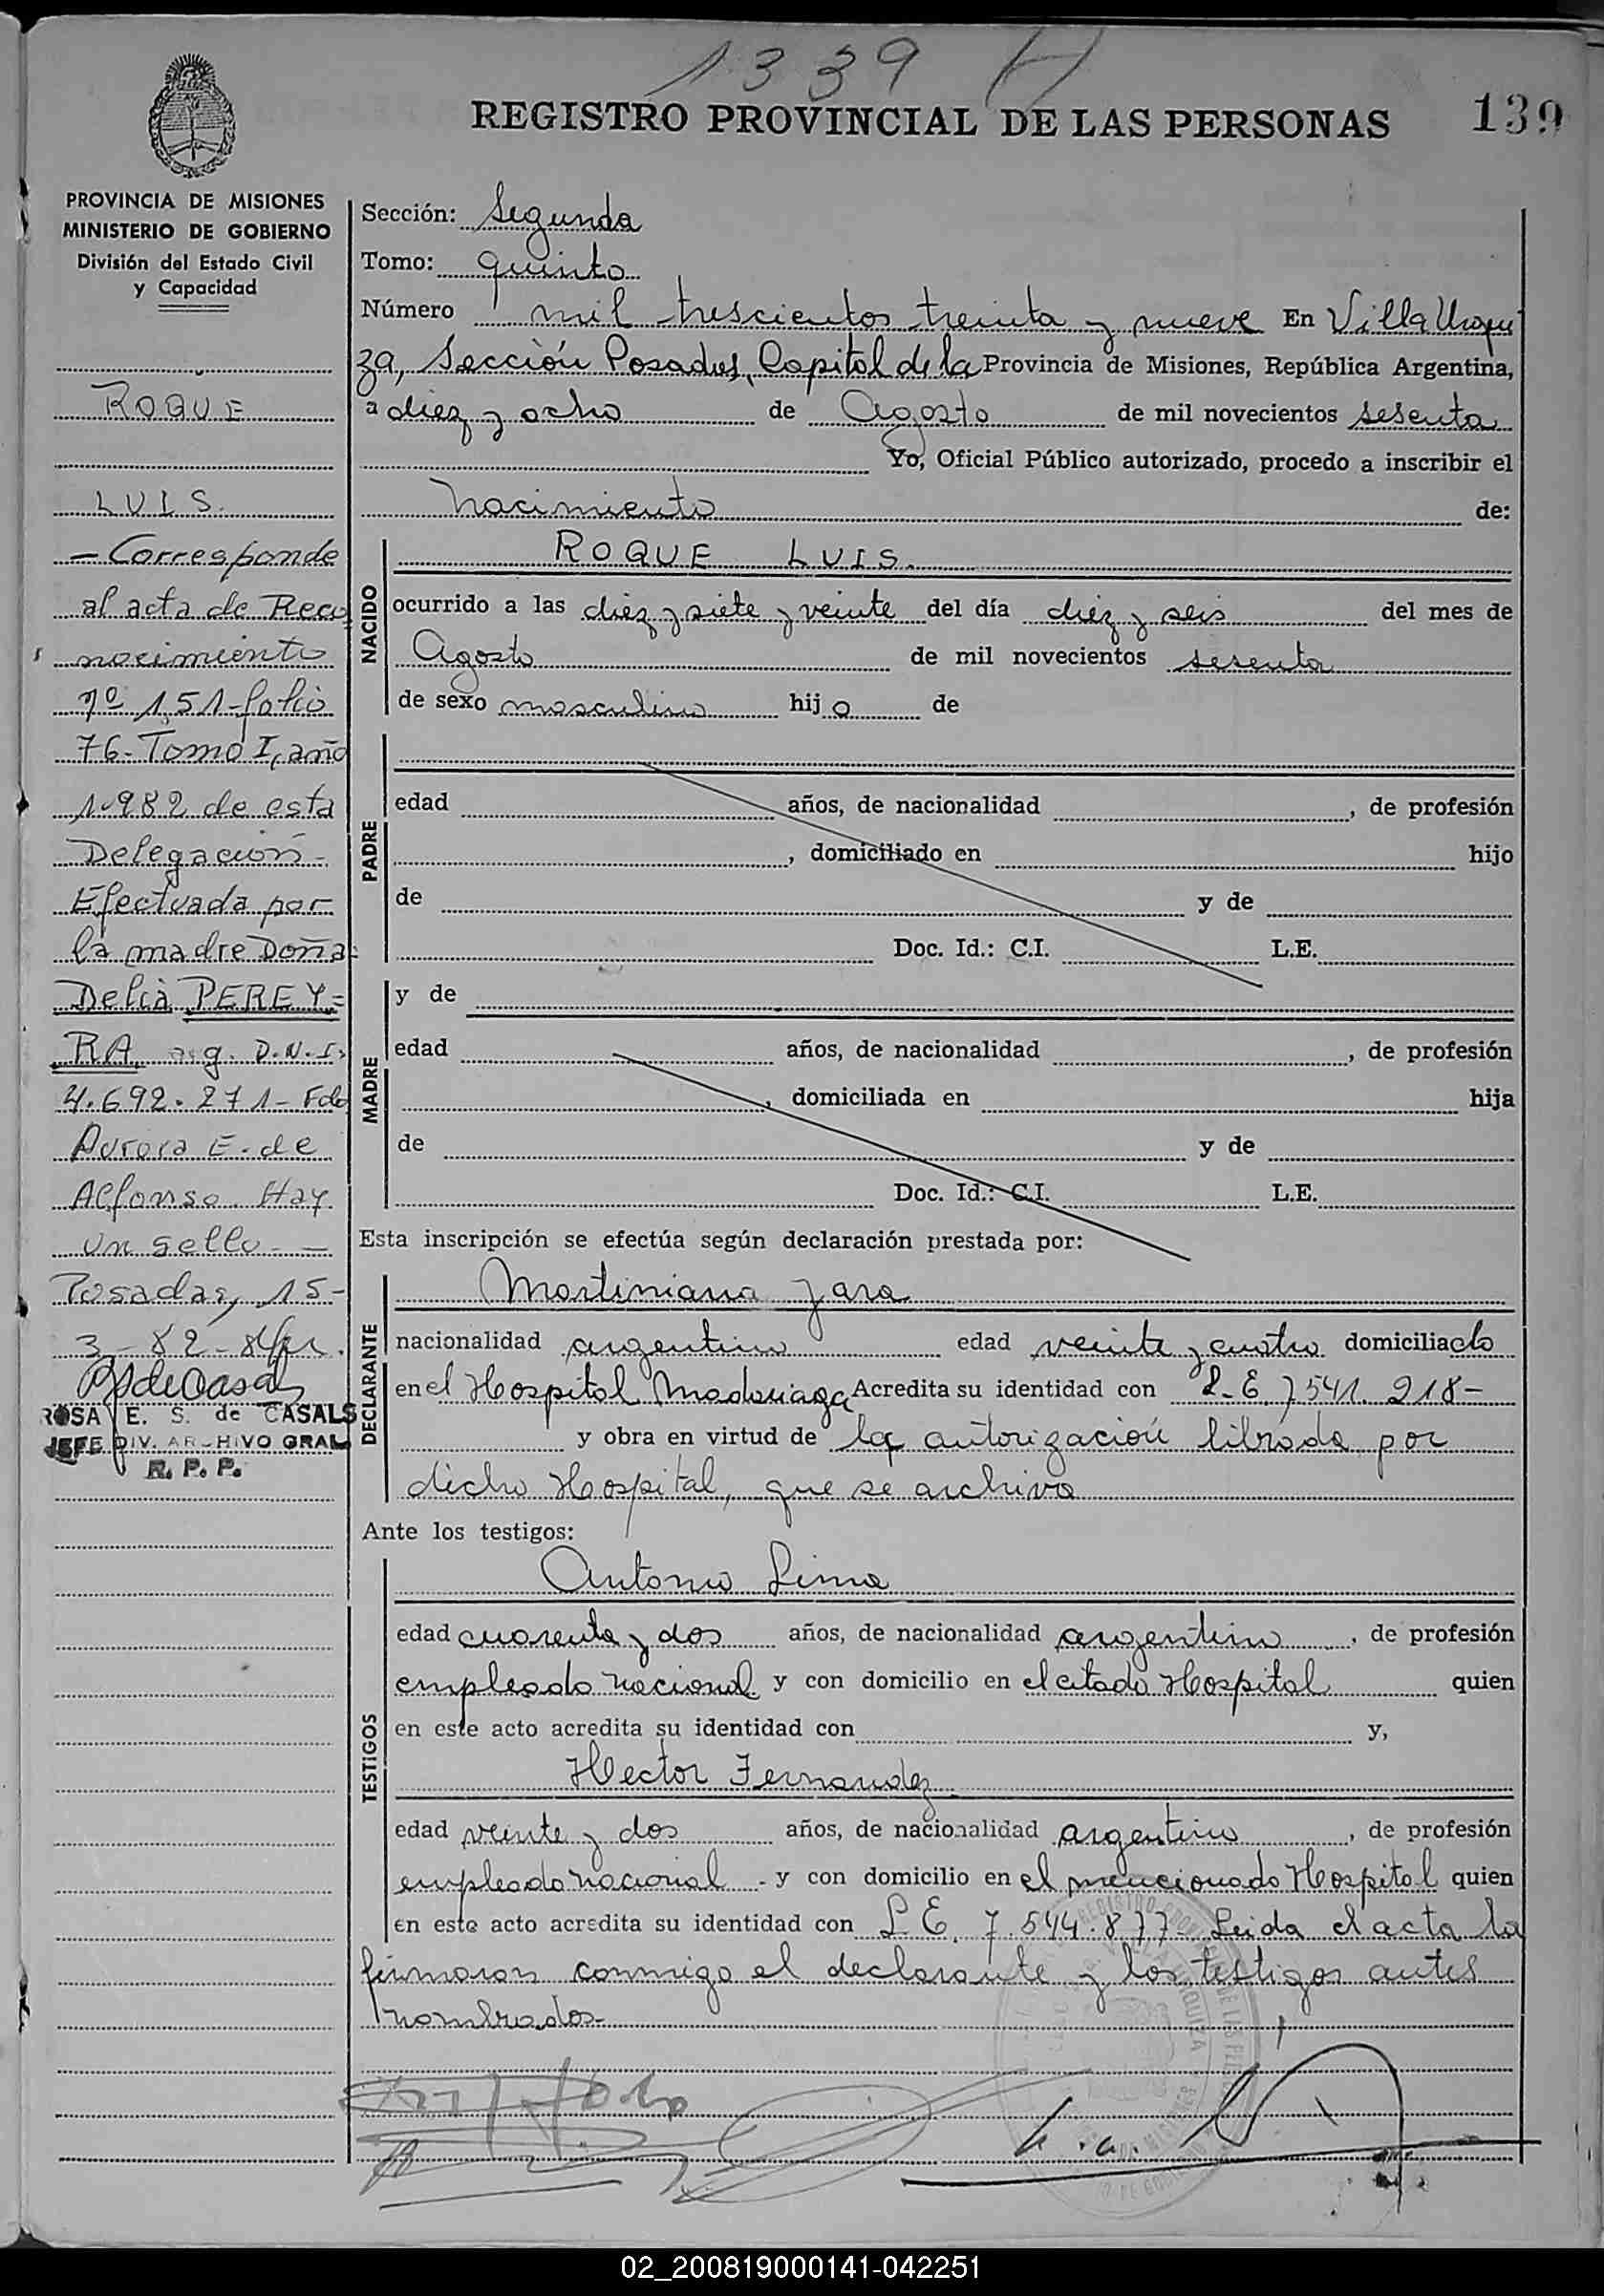 1339
REGISTRO PROVINCIAL DE LAS PERSONAS 139
PROVINCIA DE MISIONES
MINISTERIO DE GOBIERNO
División del Estado Civil
y Capacidad
ROQUE
LUIS.
— Corresponde
al acta de Reco
nocimiento
nº 151-folio
76-Tomo I, año
1.982 de esta
Delegación-
Efectuada por
la madre Doña
Delia PEREY=
RA arg. D.N.I.
4.692.271- Fdo
Aurora E. de
Alfonso. Hay
un sello. —
Posadas, 15-
3-82-
ROSA E. S. de CASALS
JEFE DIV. ARCHIVO GRAL
R. P. P.
Sección: Segunda
Tomo: quinto
Número mil trescientos treinta y nueve En Villa Urqui
za, Sección Posadas, Capital de la Provincia de Misiones, República Argentina,
a diez y ocho de Agosto de mil novecientos sesenta
Yo, Oficial Público autorizado, procedo a inscribir el
nacimiento de:
NACIDO
ROQUE LUIS.
ocurrido a las diez y siete y veinte del día diez y seis del mes de
Agosto de mil novecientos sesenta
de sexo masculino hijo de
PADRE
edad años, de nacionalidad , de profesión
, domiciliado en hijo
de y de
Doc. Id.: C.I. L.E.
MADRE
y de
edad años, de nacionalidad , de profesión
, domiciliada en hija
de y de
Doc. Id.: C.I. L.E.
Esta inscripción se efectúa según declaración prestada por:
DECLARANTE
Martiniano Jara
nacionalidad argentino edad veinte y cuatro domiciliado
en el Hospital Madariaga Acredita su identidad con L.E. 7541.218-
y obra en virtud de la autorización librada por
dicho Hospital, que se archiva
Ante los testigos:
TESTIGOS
Antonio Lima
edad cuarenta y dos años, de nacionalidad argentino, de profesión
empleado nacional y con domicilio en el citado Hospital quien
en este acto acredita su identidad con y,
Hector Fernandez
edad veinte y dos años, de nacionalidad argentino, de profesión
empleado nacional - y con domicilio en el mencionado Hospital quien
en este acto acredita su identidad con L.E. 7.544.877- Leida el acta la
firmaron conmigo el declarante y los testigos antes
nombrados-
02_200819000141-042251